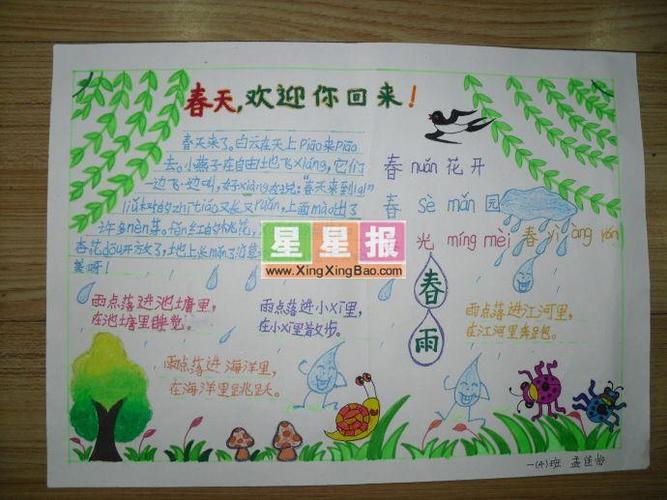 春天,欢迎你回来!
春天来了。白云在天上piāo来piāo
去。小燕子在自由地飞xiáng,它们
一边飞一边叫,好xiàng在说:"春天来到la!"
liǔ树的zhī tiáo又长又ruǎn,上面mào出了
许多nèn芽。粉红的桃花,
杏花dōu开放了,土地上长mǎn了
美呀!
春 nuǎn 花 开
春 sè mǎn 园
光 míng mèi 春 yì àng rán
星星报
www.XingXingBao.com
春
雨
雨点落进池塘里,
在池塘里睡觉。
雨点落进小xī里,
在小xī里散步。
雨点落进江河里,
在江河里奔跑。
雨点落进海洋里,
在海洋里跳跃。
一(4)班 孟佳怡